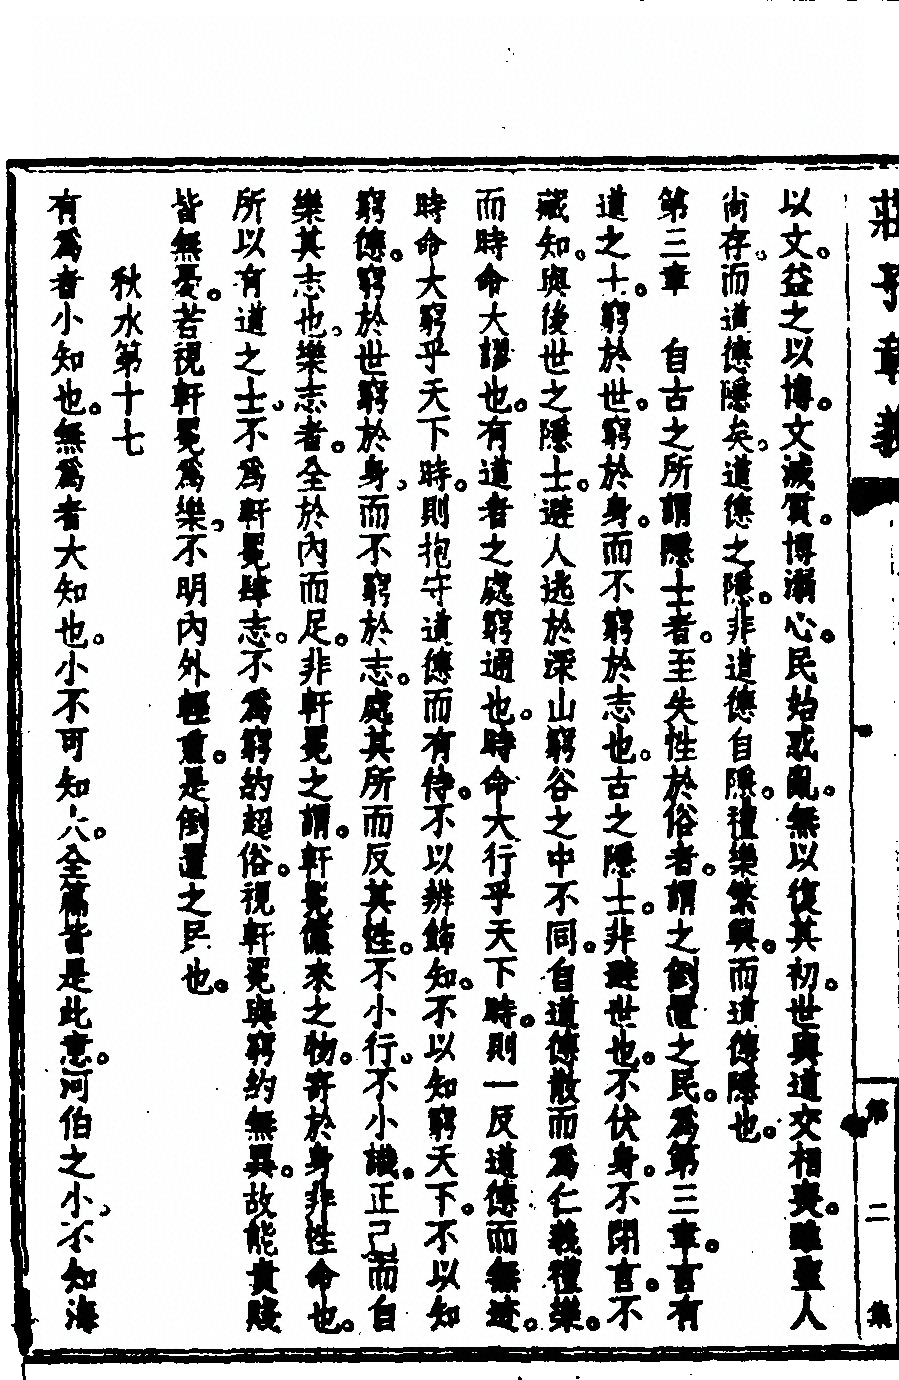 莊子章義
第二集
以文。益之以博。文滅質。博溺心。民始惑亂。無以復其初。世與道交相喪。雖聖人
尚存、而道德隱矣、道德之隱。非道德自隱。禮樂繁興。而道德隱也。
第三章　自古之所謂隱士者。至失性於俗者。謂之倒置之民。爲第三章。言有
道之士。窮於世。窮於身。而不窮於志也。古之隱士。非避世也。不伏身。不閉言。不
藏知。與後世之隱士。避人逃於深山窮谷之中不同。自道德散而爲仁義禮樂。
而時命大謬也。有道者之處窮通也。時命大行乎天下時。則一反道德而無迹。
時命大窮乎天下時。則抱守道德而有待。不以辨飾知。不以知窮天下。不以知
窮德。窮於世窮於身、而不窮於志。處其所而反其性。不小行、不小識。正己而自
樂其志也、樂志者。全於內而足。非軒冕之謂。軒冕儻來之物。寄於身非性命也。
所以有道之士、不爲軒冕肆志。不爲窮約超俗。視軒冕與窮約無異。故能貴賤
皆無憂。若視軒冕爲樂、不明內外輕重。是倒置之民也。
秋水第十七
有爲者小知也。無爲者大知也。小不可知大。全篇皆是此意。河伯之小、不知海